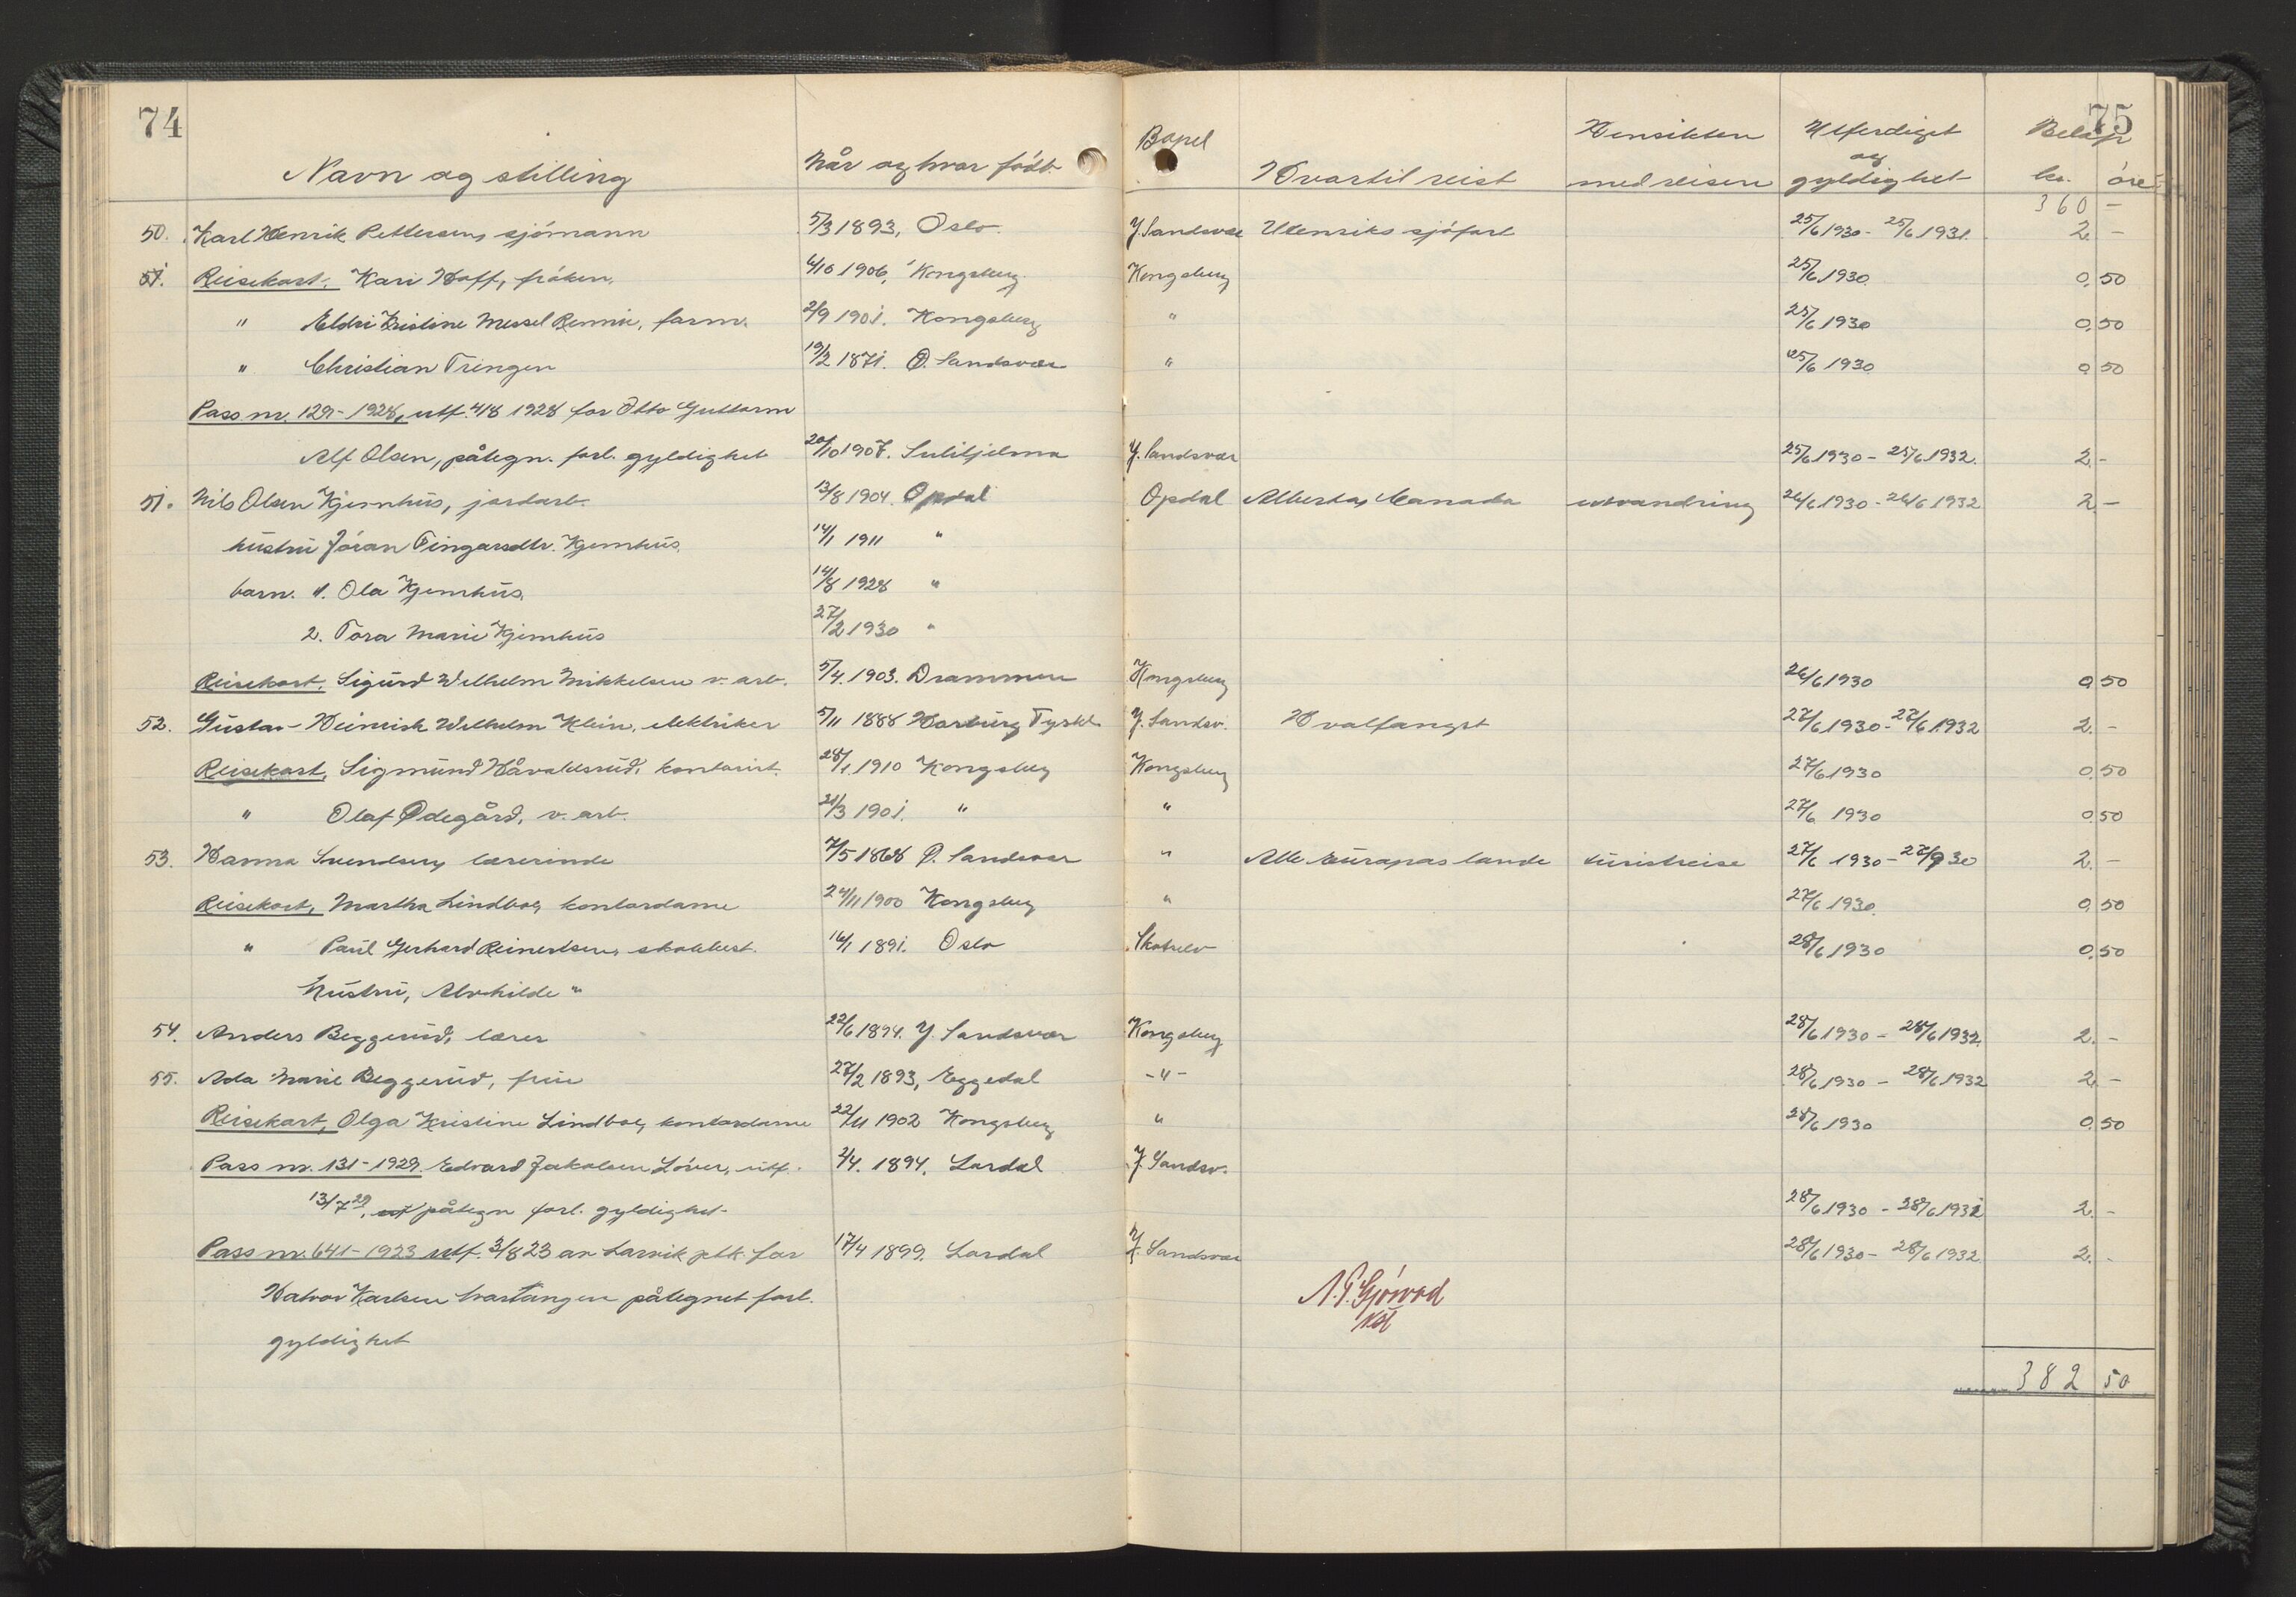 74
75
Navn og stilling Når og hvor født Bopel Hvortil reist Hensikten med reisen Utferdiget og gyldighet Beløp kr. øre
360 -
50. Karl Henrik Pettersen, sjømann 5/3 1893, Oslo. Y. Sandsvær Utenriks sjøfart 25/6 1930 - 25/6 1931. 2. -
51. Reisekort, Kari Hoff, frøken. 4/10 1906, Kongsberg. Kongsberg 25/6 1930. 0,50
" Eldri Kristine Messel Rennie, farm. 2/9 1901. Kongsberg " 25/6 1930 0,50
" Christian Tringen 19/2 1871. Ø. Sandsvær " 25/6 1930 0 50
Pass nr. 129 - 1928, utf. 4/8 1928 for Otto Guttorm
Alf Olsen, påtegn. forl. gyldighet 20/10 1907. Sulitjelma Y. Sandsvær 25/6 1930 - 25/6 1932. 2. -
51. Nils Olsen Kjemhus, jordarb. 13/8 1904. Opdal Opdal Alberta, Canada utvandring 26/6 1930 - 26/6 1932 2. -
hustru Jöran Tingarsdtr. Kjemhus, 14/1 1911 "
barn. 1. Ola Kjemhus, 14/8 1928 "
2. Tora Marie Kjemhus 27/2 1930 "
Reisekort, Sigurd Wilhelm Mikkelsen v. arb. 5/4. 1903. Drammen Kongsberg 26/6 1930 0,50
52. Gustav - Heinrich Wilhelm Klein, elektriker 5/11 1888 Harburg Tyskl. Y. Sandsv. Hvalfangst 27/6 1930 - 27/6 1932 2. -
Reisekort, Sigmund Håvaldsrud, kontorist. 28/1 1910 Kongsberg Kongsberg 27/6 1930 0.50
" Olaf Ødegård, v. arb. 21/3 1901. " " 27/6 1930 0.50
53. Hanna Svendsen, lærerinde 7/5 1868 Ø. Sandsvær " Alle Europas lande turistreise 27/6 1930 - 27/9 30 2. -
Reisekort, Martha Lindboe, kontordame 24/11 1900 Kongsberg " 27/6 1930. 0,50
" Paul Gerhard Reinertsen, skolebest. 16/1 1891. Oslo Skotselv 28/6 1930 0,50
hustru, Alvhilde "
54. Anders Beggerud, lærer 22/6 1894. Y. Sandsvær Kongsberg 28/6 1930 - 28/6 1932. 2. -
55. Ada Marie Beggerud, frue 27/2 1893, Eggedal - " - 28/6 1930 - 28/6 1932 2 -
Reisekort, Olga Kristine Lindboe, kontordame 22/11 1902 Kongsberg " 28/6 1930 0.50
Pass nr. 131 - 1929. Edvard Jakobsen Løver, utf. 2/4. 1894. Lardal Y. Sandsv.
13/7 29, påtegn forl. gyldighet. 28/6 1930 - 28/6 1932 2. -
Pass nr. 641 - 1923 utf. 3/8 23 av Larvik pltk. for 17/4 1899. Lardal Y. Sandsvær 28/6 1930 - 28/6 1932. 2. -
Halvor Karlsen Svartangen påtegnet forl.
gyldighet
382 50